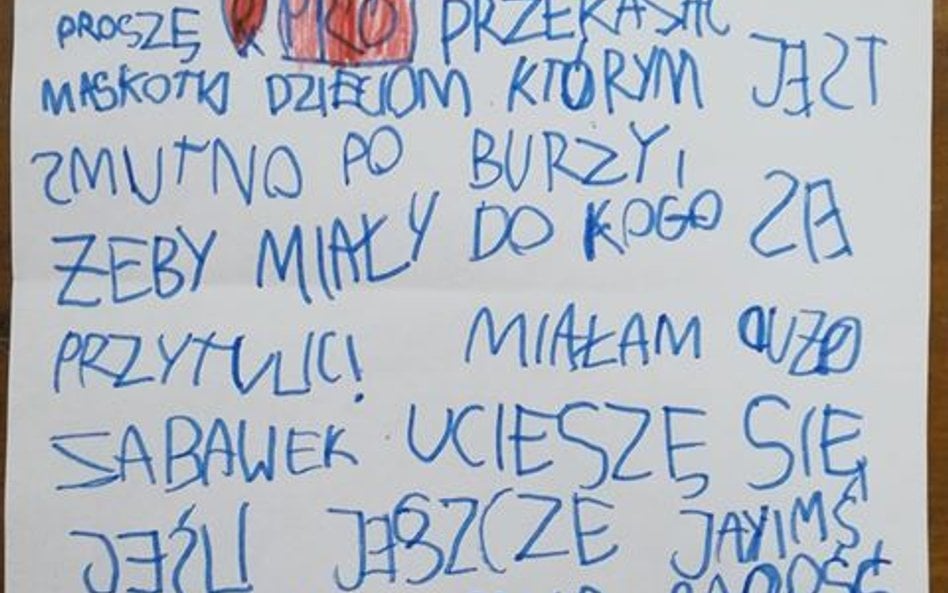 PROSZĘ PRZEKASAĆ
MASKOTKI DZIECIOM KTÓRYM JEST
ZMUTNO PO BURZY,
ŻEBY MIAŁY DO KOGO SIĘ
PRZYTULIĆ! MIAŁAM DUŻO
SABAWEK UCIESZĘ SIĘ
JEŚLI JESZCZE JAKIMŚ